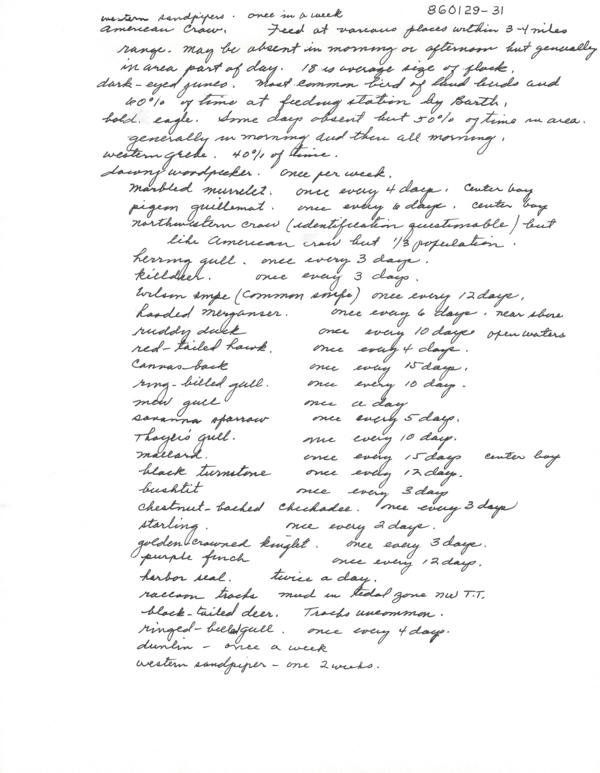 western sandpipers. once in a week 860129-31
American Crow. Feed at various places within 3-4 miles
range. may be absent in morning or afternoon but generally
in area part of day. 18 is average size of flock.
dark-eyed junco. most common bird of land birds and
60% of time at feeding station by Barth.
bald eagle. Some days absent but 50% of time in area.
generally in morning and then all morning.
western grebe. 40% of time.
downy woodpecker. once per week.
marbled murrelet. once every 4 days. center bay
pigeon guillemot. once every 6 days. center bay
northwestern crow (identification questionable) but
like American crow but 1/3 population.
herring gull. once every 3 days.
killdeer. once every 3 days.
Wilson snipe (common snipe) once every 12 days.
hooded merganser. once every 6 days. near shore
ruddy duck once every 10 days open waters
red-tailed hawk. once every 4 days.
canvas-back once every 15 days.
ring-billed gull. once every 10 days.
mew gull once a day
savanna sparrow once every 5 days.
Thayer's gull. once every 10 days.
mallard. once every 15 days center bay
black turnstone once every 12 days.
bushtit once every 3 days
chestnut-backed chickadee. once every 3 days
starling. once every 2 days.
golden-crowned kinglet. once every 3 days.
purple finch once every 12 days.
harbor seal. twice a day.
raccoon tracks mud in tidal zone NW T.T.
black-tailed deer. Tracks uncommon.
ringed-billed gull. once every 4 days.
dunlin - once a week
western sandpiper - one 2 weeks.